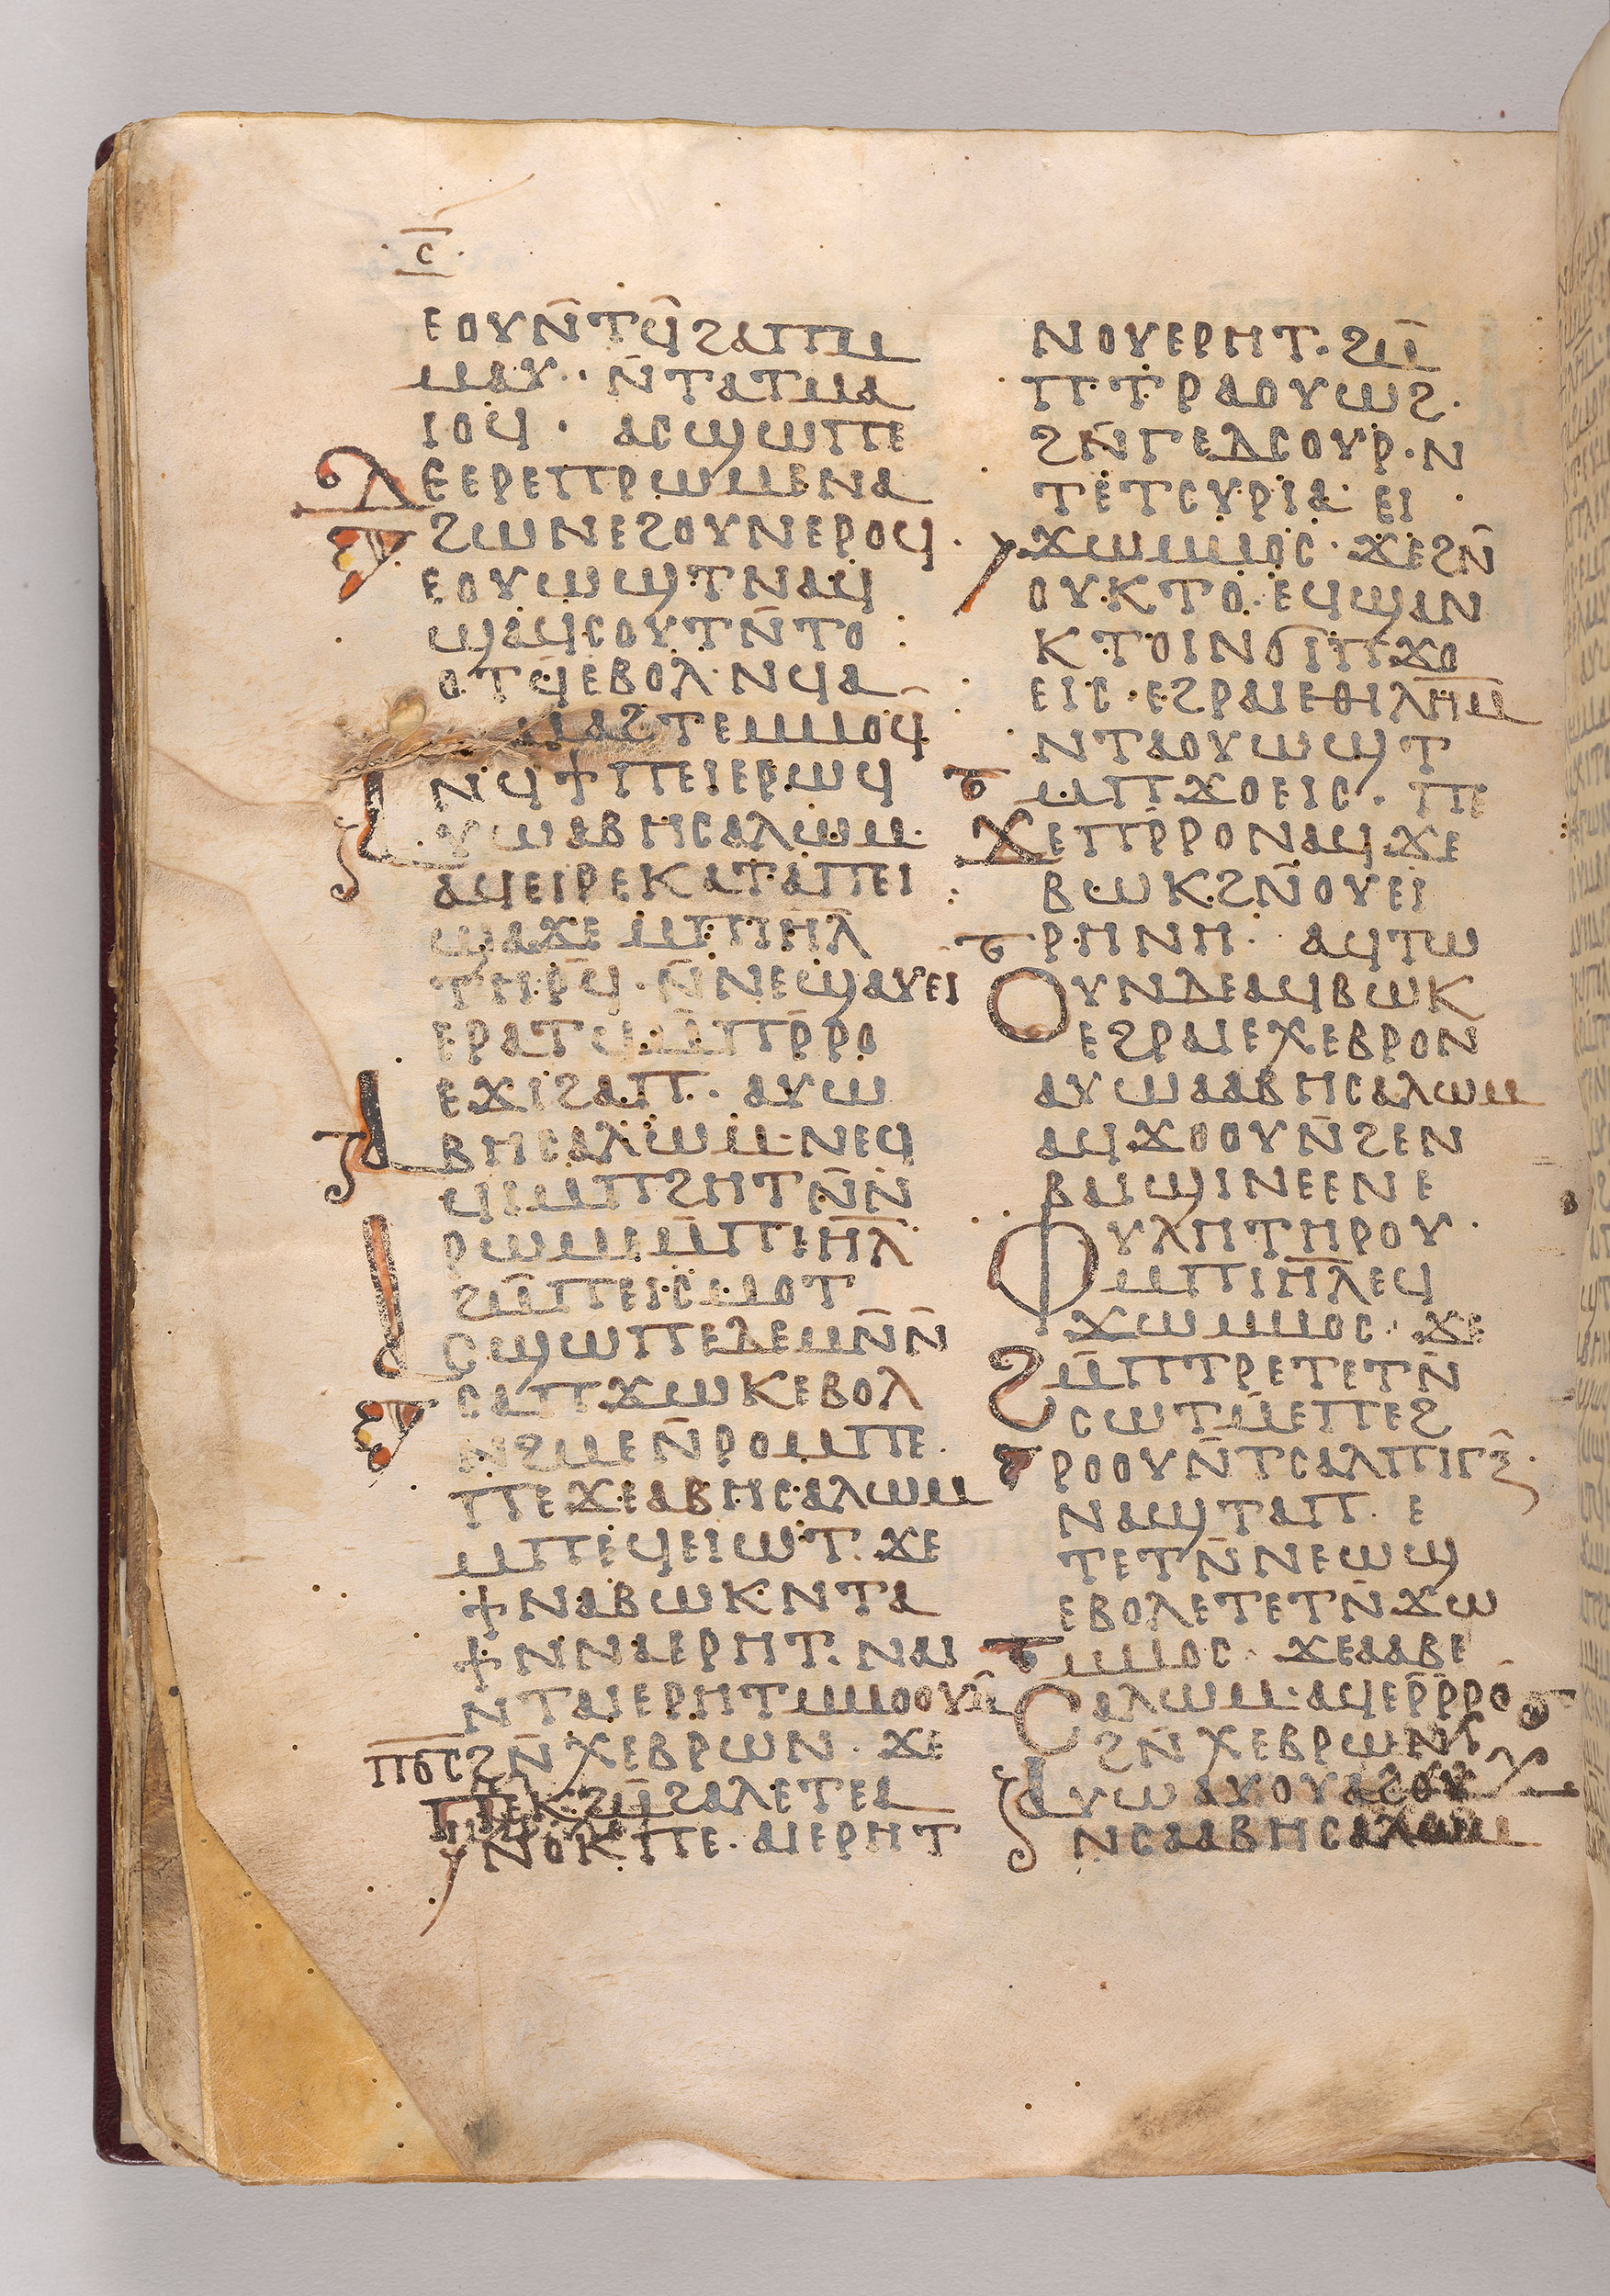 ⲥ̅
ⲉⲟⲩⲛ̄ⲧϥ̄ϩⲁⲡⲙ
ⲙⲁⲩ· ⲛ̄ⲧⲁⲧⲙⲁ
ⲓⲟϥ· ⲁⲥϣⲱⲡⲉ
ⲇⲉⲉⲣⲉⲡⲣⲱⲙⲉⲛⲁ
ϩⲱⲛⲉϩⲟⲩⲛⲉⲣⲟϥ·
ⲉⲟⲩⲱϣⲧⲛⲁϥ
ϣⲁϥⲥⲟⲩⲧⲛ̄ⲧⲟ
ⲟⲧϥ̄ⲉⲃⲟⲗ·ⲛϥⲁ
ⲙⲁϩⲧⲉⲙⲙⲟϥ
ⲛϥϯⲡⲉⲓⲉⲣⲱϥ
ⲁⲩⲱⲁⲃⲏⲥⲁⲗⲱⲙ·
ⲁϥⲉⲓⲣⲉⲕⲁⲧⲁⲡⲉⲓ
ϣⲁϫⲉⲙⲡⲓⲏ̄ⲗ
ⲧⲏⲣϥ̄·ⲛ̄ⲛⲉϣⲁⲩⲉⲓ
ⲉⲣⲁⲧϥⲙ̄ⲡⲣ̄ⲣⲟ
ⲉϫⲓϩⲁⲡ· ⲁⲩⲱ
ⲁⲃⲏⲥⲁⲗⲱⲙ·ⲛⲉϥ
ϥⲓⲙⲡϩⲏⲧⲛ̄ⲛ̄
ⲣⲱⲙⲉⲙ̄ⲡⲓⲏ̄ⲗ
ϩⲙ̄ⲡⲉⲓⲥⲙⲟⲧ
ⲁⲥϣⲱⲡⲉⲇⲉⲙⲛ̄ⲛ̄
ⲥⲁⲡϫⲱⲕⲉⲃⲟⲗ
ⲛϩⲙⲉⲛ̄ⲣⲟⲙⲡⲉ·
ⲡⲉϫⲉⲁⲃⲏⲥⲁⲗⲱⲙ
ⲙⲡⲉϥⲉⲓⲱⲧ·ϫⲉ
ϯⲛⲁⲃⲱⲕⲛⲧⲁ
ϯⲛⲛⲁⲉⲣⲏⲧ·ⲛⲁⲓ
ⲛⲧⲁⲓⲉⲣⲏⲧⲙⲙⲟⲟⲩⲙ̄
ⲡⲟ̅ⲥ̅ϩⲛ̄ⲭⲉⲃⲣⲱⲛ·ϫⲉ
ⲡⲉⲕϩⲙ̄ϩⲁⲗⲉⲧⲉⲁ
ⲛⲟⲕⲡⲉ·ⲁⲓⲉⲣⲏⲧ
ⲛⲟⲩⲉⲣⲏⲧ·ϩⲙ̄
ⲡⲧⲣⲁⲟⲩⲱϩ·
ϩⲛ̄ⲅⲉⲇⲥⲟⲩⲣ·ⲛ
ⲧⲉⲧⲥⲩⲣⲓⲁ·ⲉⲓ
ϫⲱⲙⲙⲟⲥ·ϫⲉϩⲛ̄
ⲟⲩⲕⲧⲟ·ⲉϥϣⲁⲛ
ⲕⲧⲟⲓⲛϭⲓⲡϫⲟ
ⲉⲓⲥ·ⲉϩⲣⲁⲓⲉⲑⲓⲗⲏ̅ⲙ̅
ⲛⲧⲁⲟⲩⲱϣⲧ
ⲙⲡϫⲟⲉⲓⲥ·ⲡⲉ
ϫⲉⲡⲣ̄ⲣⲟⲛⲁϥϫⲉ
ⲃⲱⲕϩⲛ̄ⲟⲩⲉⲓ
ⲣⲏⲛⲏ· ⲁϥⲧⲱ
ⲟⲩⲛⲇⲉⲁϥⲃⲱⲕ
ⲉϩⲣⲁⲓⲉⲭⲉⲃⲣⲟⲛ
ⲁⲩⲱⲁⲁⲃⲏⲥⲁⲗⲱⲙ
ⲁϥϫⲟⲟⲩⲛ̄ϩⲉⲛ
ⲃⲁⲓϣⲓⲛⲉⲉⲛⲉ
ⲫⲩⲗⲏⲧⲏⲣⲟⲩ·
ⲙⲡⲓⲏ̄ⲗⲉϥ
ϫⲱⲙⲙⲟⲥ·ϫⲉ
ϩⲙ̄ⲡⲧⲣⲉⲧⲉⲧⲛ̄
ⲥⲱⲧⲙ̄ⲉⲡⲉϩ
ⲣⲟⲟⲩⲛ̄ⲧⲥⲁⲗⲡⲓⲅⲝ̄·
ⲛⲁϣⲧⲁⲡ· ⲉ
ⲧⲉⲧⲛ̄ⲛⲉⲱϣ
ⲉⲃⲟⲗⲉⲧⲉⲧⲛ̄ϫⲱ
ⲙⲙⲟⲥ·ϫⲉⲁⲁⲃⲉ
ⲥⲁⲗⲱⲙ·ⲁϥⲉⲣ̄ⲣ̄ⲣⲟ
ϩⲛ̄ⲭⲉⲃⲣⲱⲛ
ⲁⲩⲱⲁⲩⲟⲩⲁϩⲟⲩ
ⲛⲥⲁⲁⲃⲏⲥⲁⲗⲱⲙ